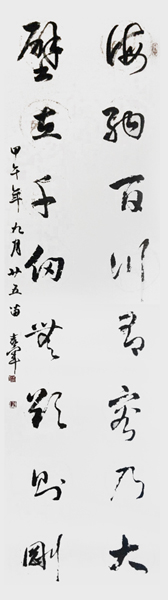 海纳百川有容乃大
壁立千仞无欲则刚
甲午年九月廿五